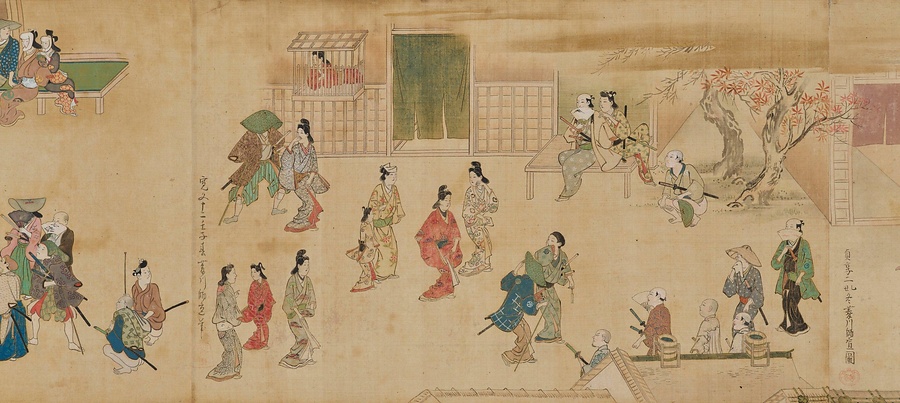 貞享二丑冬菱川師宣圖
寛文十二壬子年菱川師宣筆